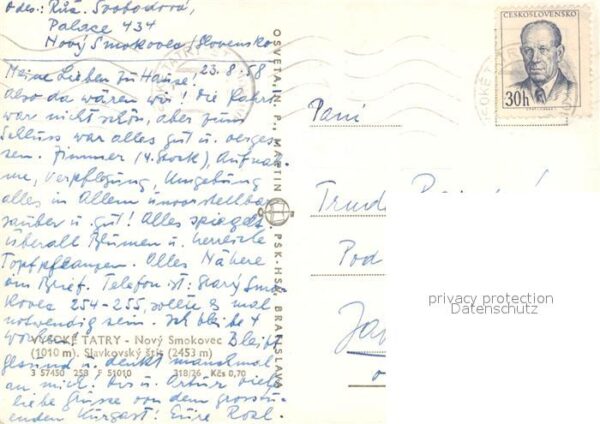 Odes.: Růž. Svobodová,
Palace 434
Nový Smokovec/Slovensko
23.8.58
Meine Lieben zu Hause!
also da wären wir! Die Fahrt
war nicht schön, aber zum
Schluss war alles gut u. verges-
sen. Zimmer (4. Stock), Aufnah-
me, Verpflegung, Umgebung
alles in Allem unvorstellbar
sauber u. gut! Alles spiegelt
überall Blumen u. herrliche
Topfpflanzen. Alles Nähere
im Brief. Telefon ist: Starý Smo-
kovec 254-255, sollte es mal
notwendig sein. Ich bleibe 4
Wochen! Bleibt
gesund u. denkt manchmal
an mich. Aus u. Artur viele
liebe Grüsse von dem
enden Kurgast! Eure Rosl.
VYSOKÉ TATRY - Nový Smokovec
(1010 m). Slavkovský štít (2453 m)
3 57450 258 F 51010 318/26 Kčs 0,70
OSVETA, N. P., MARTIN
PSK-HSA, BRATISLAVA
ČESKOSLOVENSKO
30h
Paní
Pod
privacy protection
Datenschutz